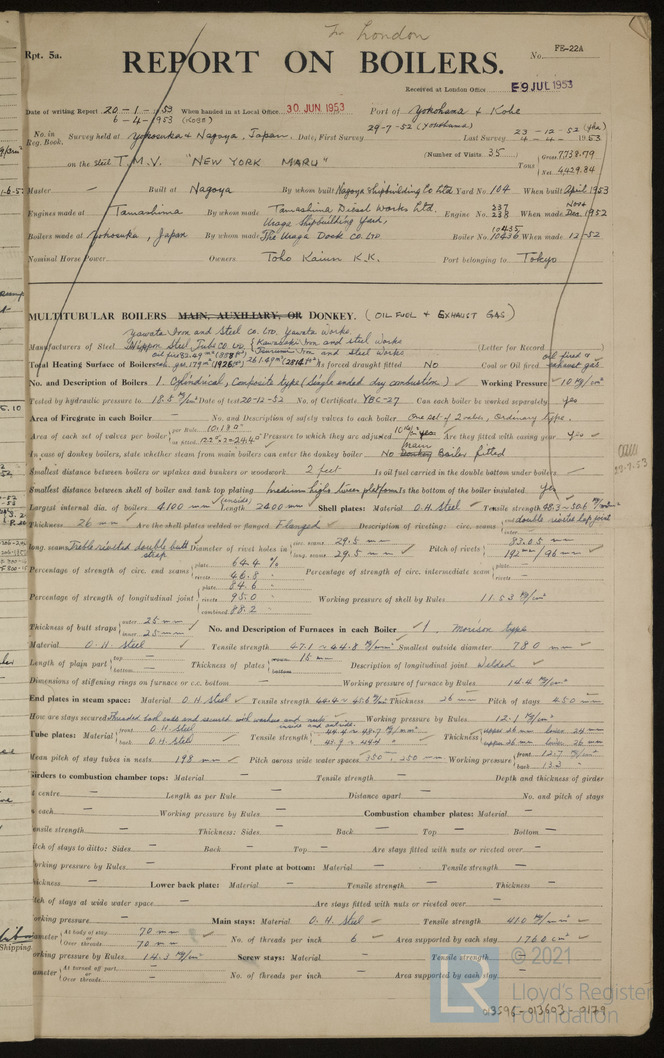 To London
Rpt. 5a.
No. FE-22A
REPORT ON BOILERS.
Received at London Office 9 JUL 1953
Date of writing Report 20-1-1953 When handed in at Local Office 30 JUN 1953 Port of Yokohama & Kobe
6-4-1953 (KOBE) 29-7-52 (Yokohama) 23-12-52
No. in Reg. Book. Survey held at Yokosuka & Nagoya, Japan. Date, First Survey Last Survey 4-4-1953
on the Steel T.M.V. "NEW YORK MARU" (Number of Visits 35) Tons Gross 7738.79 Net 4429.84
Master — Built at Nagoya By whom built Nagoya Shipbuilding Co Ltd Yard No. 104 When built April 1953
Engines made at Tamashima By whom made Tamashima Diesel Works Ltd. Engine No. 237 238 When made Nov. Dec. 1952
Uraga Shipbuilding Yard,
Boilers made at Yokosuka, Japan By whom made The Uraga Dock Co. Ltd Boiler No. 10435 10436 When made 12-52
Nominal Horse Power Owners Toho Kaiun K.K. Port belonging to Tokyo
MULTITUBULAR BOILERS MAIN, AUXILIARY, OR DONKEY. (OIL FUEL & EXHAUST GAS)
Yawata Iron and Steel Co. Ltd, Yawata Works
Manufacturers of Steel Nippon Steel Tube Co. Ltd Kawasaki Iron and Steel Works (Letter for Record
Iron and Steel Works
Total Heating Surface of Boilers Is forced draught fitted No Coal or Oil fired oil fired & exhaust gas
No. and Description of Boilers 1. Cylindrical, Composite type (single ended dry combustion) Working Pressure 10 kg/cm²
Tested by hydraulic pressure to 18.5 kg/cm² Date of test 20-12-52 No. of Certificate YBC-27 Can each boiler be worked separately yes
Area of Firegrate in each Boiler — No. and Description of safety valves to each boiler One set of 2 valves, Ordinary type.
Area of each set of valves per boiler per Rule as fitted Pressure to which they are adjusted Are they fitted with easing gear yes
In case of donkey boilers, state whether steam from main boilers can enter the donkey boiler No main Boiler fitted
Smallest distance between boilers or uptakes and bunkers or woodwork 2 feet Is oil fuel carried in the double bottom under boilers —
Smallest distance between shell of boiler and tank top plating medium high, tween platform Is the bottom of the boiler insulated yes
Largest internal dia. of boilers 4100 mm Length 2400 mm Shell plates: Material O.H. Steel Tensile strength 48.3~50.6 kg/mm²
Thickness 26 mm Are the shell plates welded or flanged Flanged Description of riveting: circ. seams end double riveted lap joint
long. seams Treble riveted double butt strap Diameter of rivet holes in circ. seams 29.5 mm long. seams 29.5 mm Pitch of rivets 83.05 mm 192 mm/96 mm
Percentage of strength of circ. end seams plate 64.4 % rivets 46.8 Percentage of strength of circ. intermediate seam plate — rivets —
Percentage of strength of longitudinal joint plate 84.6 rivets 95.0 combined 88.2 Working pressure of shell by Rules 11.53 kg/cm²
Thickness of butt straps outer 25 mm inner 25 mm No. and Description of Furnaces in each Boiler 1. Morison type
Material O.H. Steel Tensile strength 47.1~44.8 kg/mm² Smallest outside diameter 780 mm
Length of plain part top bottom Thickness of plates 15 mm bottom Description of longitudinal joint Welded
Dimensions of stiffening rings on furnace or c.c. bottom — Working pressure of furnace by Rules 14.4 kg/cm²
End plates in steam space: Material O.H. Steel Tensile strength 44.4~45.6 kg/mm² Thickness 26 mm Pitch of stays 450 mm
How are stays secured Threaded both ends and secured with washers and nuts inside and outside. Working pressure by Rules 12.1 kg/cm²
Tube plates: Material front O.H. Steel back O.H. Steel Tensile strength 44.4~48.7 kg/mm² 45.9~44.4 Thickness upper 26 mm lower 24 mm upper 26 mm lower 26 mm
Mean pitch of stay tubes in nests 198 mm Pitch across wide water spaces 350, 250 mm Working pressure front 12.7 kg/cm² back 13.2
Girders to combustion chamber tops: Material — Tensile strength — Depth and thickness of girder
at centre — Length as per Rule — Distance apart — No. and pitch of stays
in each — Working pressure by Rules — Combustion chamber plates: Material —
Tensile strength — Thickness: Sides — Back — Top — Bottom —
Pitch of stays to ditto: Sides — Back — Top — Are stays fitted with nuts or riveted over —
Working pressure by Rules — Front plate at bottom: Material — Tensile strength —
Thickness — Lower back plate: Material — Tensile strength — Thickness —
Pitch of stays at wide water space — Are stays fitted with nuts or riveted over —
Working pressure — Main stays: Material O.H. Steel Tensile strength 41.0 kg/mm²
Diameter At body of stay 70 mm or Over threads 70 mm No. of threads per inch 6 Area supported by each stay 1760 cm²
Working pressure by Rules 14.3 kg/cm² Screw stays: Material — Tensile strength —
Diameter At turned off part — or Over threads — No. of threads per inch — Area supported by each stay —
© 2021
LR
Lloyd's Register
Foundation
013596-013603-0179